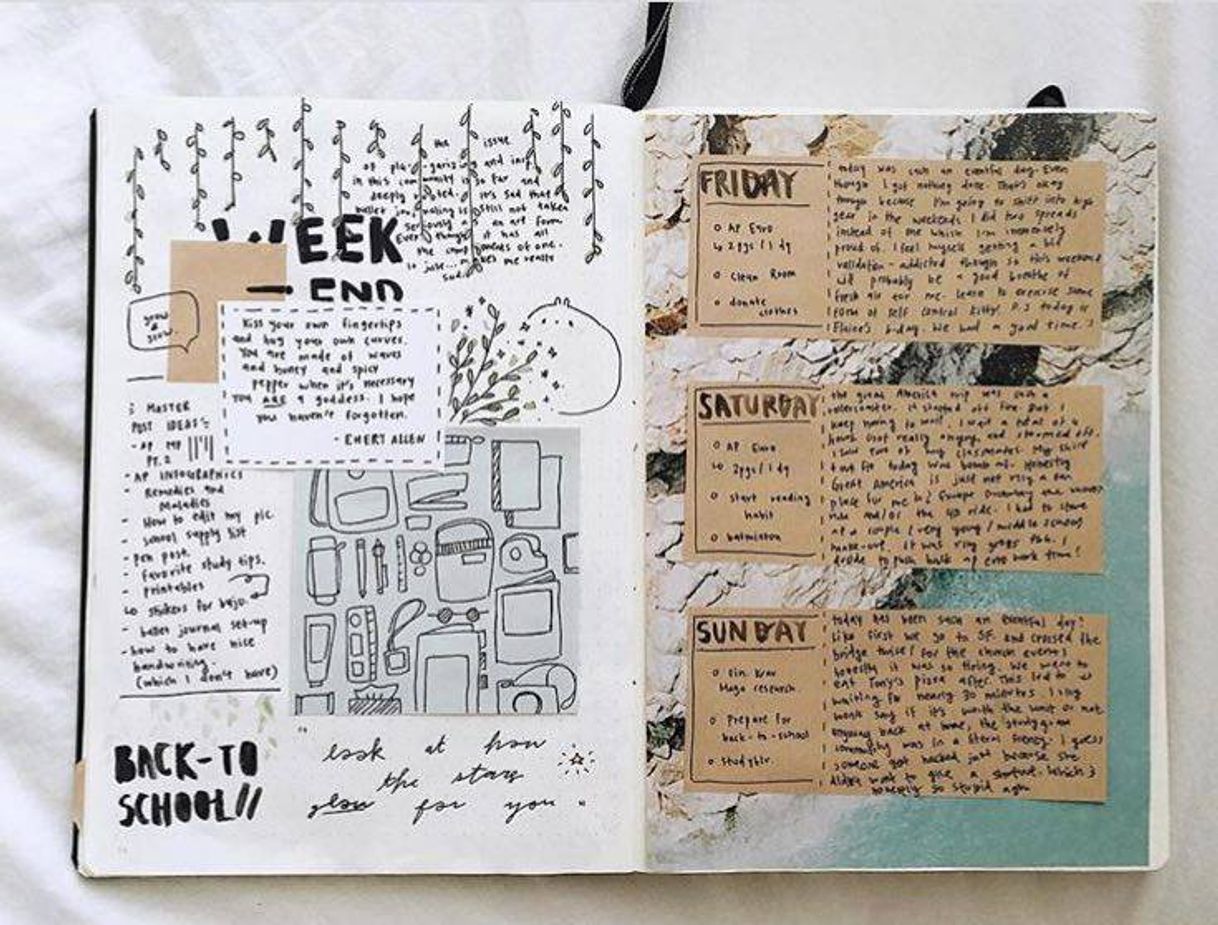 the issue
of plagiarizing and
in this community is so far and
deeply it's sad that
bullet journaling is still not taken
seriously as an art form
Even though it has all
the components of one.
is just... makes me really
sad.
WEEK
END
grow
slow.
Kiss your own fingertips
and hug your own curves.
You are made of waves
and honey and spicy
pepper when it's necessary
you are a goddess. I hope
you haven't forgotten.
- EMERY ALLEN
MASTER
POST IDEAS
- AP MP
PT. 2
- AP INFOGRAPHICS
- Remedies and
Maladies
- How to edit my pic.
- school supply list
- Pen post.
- favorite study tips.
- printables
↳ stickers for bujo.
- bullet journal set-up
- how to have nice
handwriting.
(which I don't have)
BACK-TO
SCHOOL//
"look at how
the stars
glow for you"
FRIDAY
o AP Euro
↳ 2pgs / 1 dq
o clean Room
o donate
clothes
today was such an eventful day. Even
though I got nothing done. That's okay
though because I'm going to shift into high
gear in the weekends I did two spreads
instead of one which I'm immensely
proud of. I feel myself getting a bit
validation-addicted though so this weekend
will probably be a good breathe of
fresh air for me. learn to exercise some
form of self control kitty! P.S today is
Elaine's b'day. We had a good time. :)
SATURDAY
o AP Euro
↳ 2pgs / 1 dq
o start reading
habit
o badminton
the great America trip was such a
rollercoaster. it started off fine but I
keep having to wait. I wait a total of 4
hours got really angry, and stormed off.
I saw two of my classmates. My shirt
today was Honestly
Great America is just not really a fun
place for me
ride and/or the ride. I had to stare
at a couple (very young / middle school)
make-out. It was very gross tbh. I
decide to push bulk of euro work
SUNDAY
o
Hugo research.
o Prepare for
back-to-school
o studyblr.
today has been such an eventful day!
Like first we go to SF and crossed the
bridge twice / for the church event)
honestly it was so tiring. We went to
eat Tony's pizza after. This led to us
waiting for nearly 30 minutes.
won't say if it's worth the wait or not.
anyway back at home, the studygram
community was in a literal frenzy. I guess
someone got hacked just because she
didn't want to give a shoutout. which is
honestly so stupid